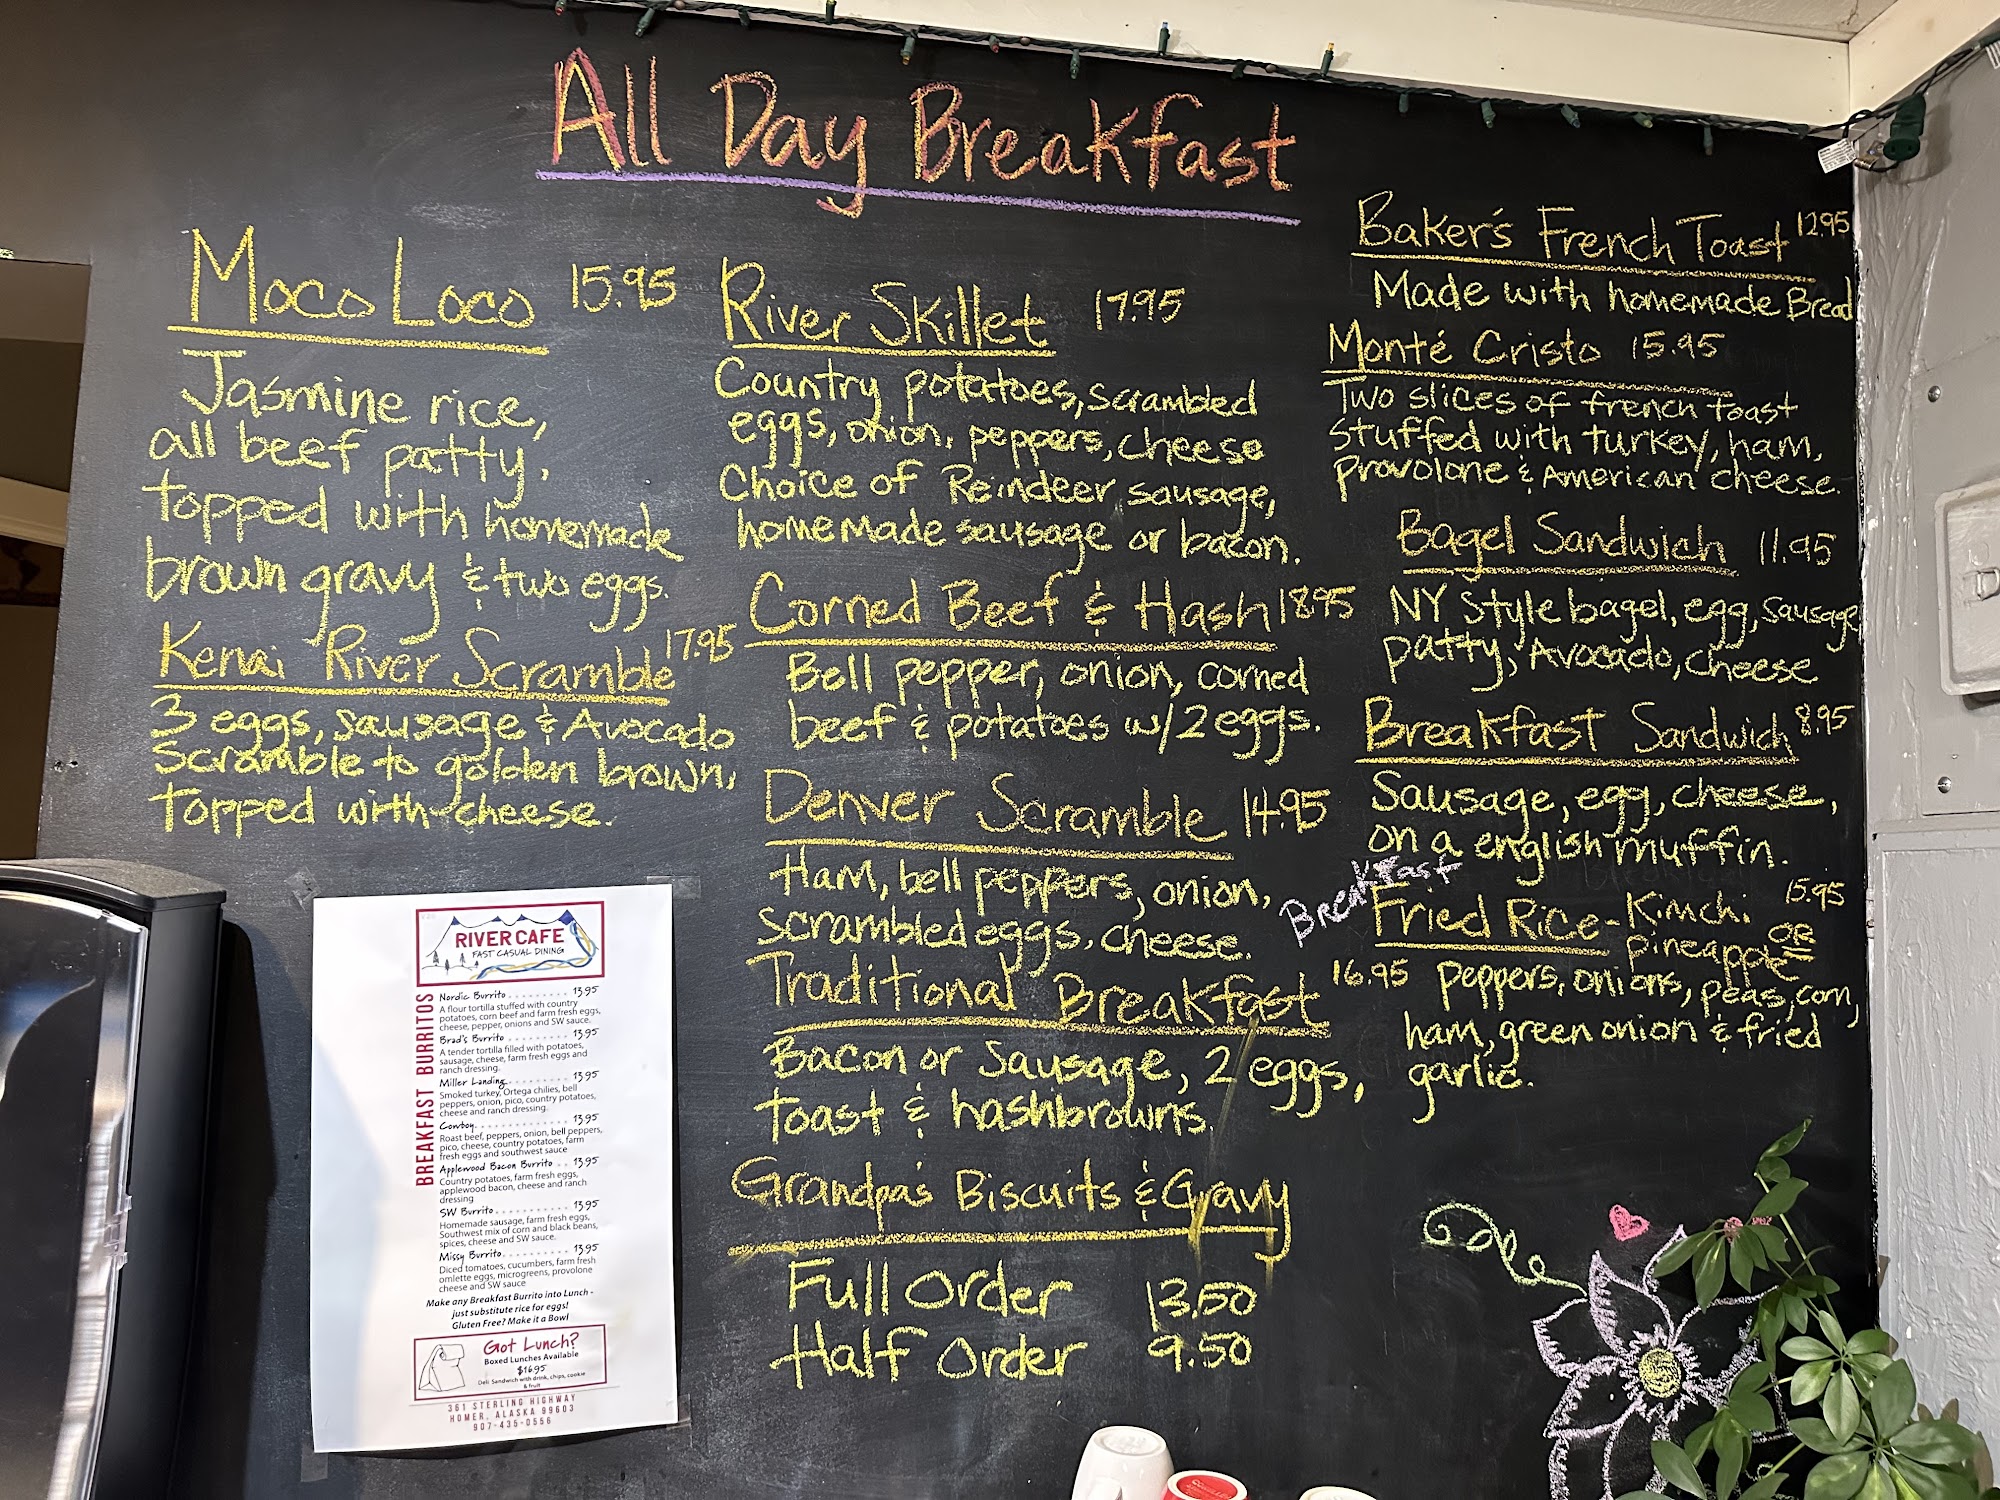 All Day Breakfast
Moco Loco 15.95
Jasmine rice,
all beef patty,
topped with homemade
brown gravy & two eggs.
Kenai River Scramble 17.95
3 eggs, sausage & Avocado
scramble to golden brown,
topped with cheese.
River Skillet 17.95
Country potatoes, scrambled
eggs, onion, peppers, cheese
Choice of Reindeer sausage,
homemade sausage or bacon.
Corned Beef & Hash 18.95
Bell pepper, onion, corned
beef & potatoes w/2 eggs.
Denver Scramble 14.95
Ham, bell peppers, onion,
scrambled eggs, cheese.
Traditional Breakfast 16.95
Bacon or Sausage, 2 eggs,
toast & hashbrowns.
Grandpa's Biscuits & Gravy
Full Order 13.50
Half Order 9.50
Baker's French Toast 12.95
Made with homemade Bread
Monté Cristo 15.95
Two slices of french toast
stuffed with turkey, ham,
provolone & American cheese.
Bagel Sandwich 11.95
NY Style bagel, egg, sausage
patty, Avocado, cheese
Breakfast Sandwich 8.95
Sausage, egg, cheese,
on a english muffin.
Breakfast
Fried Rice - Kimchi 15.95
OR
pineapple
peppers, onions, peas, corn,
ham, green onion & fried
garlic.
RIVER CAFE
FAST CASUAL DINING
BREAKFAST BURRITOS
Nordic Burrito . . . . . . . . . 13.95
A flour tortilla stuffed with country
potatoes, corn beef and farm fresh eggs,
cheese, pepper, onions and SW sauce.
Brad's Burrito . . . . . . . . . 13.95
A tender tortilla filled with potatoes,
sausage, cheese, farm fresh eggs and
ranch dressing.
Miller Landing . . . . . . . . . 13.95
Smoked turkey, Ortega chilies, bell
peppers, onion, pico, country potatoes,
cheese and ranch dressing.
Cowboy . . . . . . . . . . . . . 13.95
Roast beef, peppers, onion, bell peppers,
pico, cheese, country potatoes, farm
fresh eggs and southwest sauce
Applewood Bacon Burrito . . 13.95
Country potatoes, farm fresh eggs,
applewood bacon, cheese and ranch
dressing
SW Burrito . . . . . . . . . . . 13.95
Homemade sausage, farm fresh eggs,
Southwest mix of corn and black beans,
spices, cheese and SW sauce.
Missy Burrito . . . . . . . . . . 13.95
Diced tomatoes, cucumbers, farm fresh
omlette eggs, microgreens, provolone
cheese and SW sauce
Make any Breakfast Burrito into Lunch -
just substitute rice for eggs!
Gluten Free? Make it a Bowl
Got Lunch?
Boxed Lunches Available
$16.95
Deli Sandwich with drink, chips, cookie
& fruit
361 STERLING HIGHWAY
HOMER, ALASKA 99603
907-435-0556